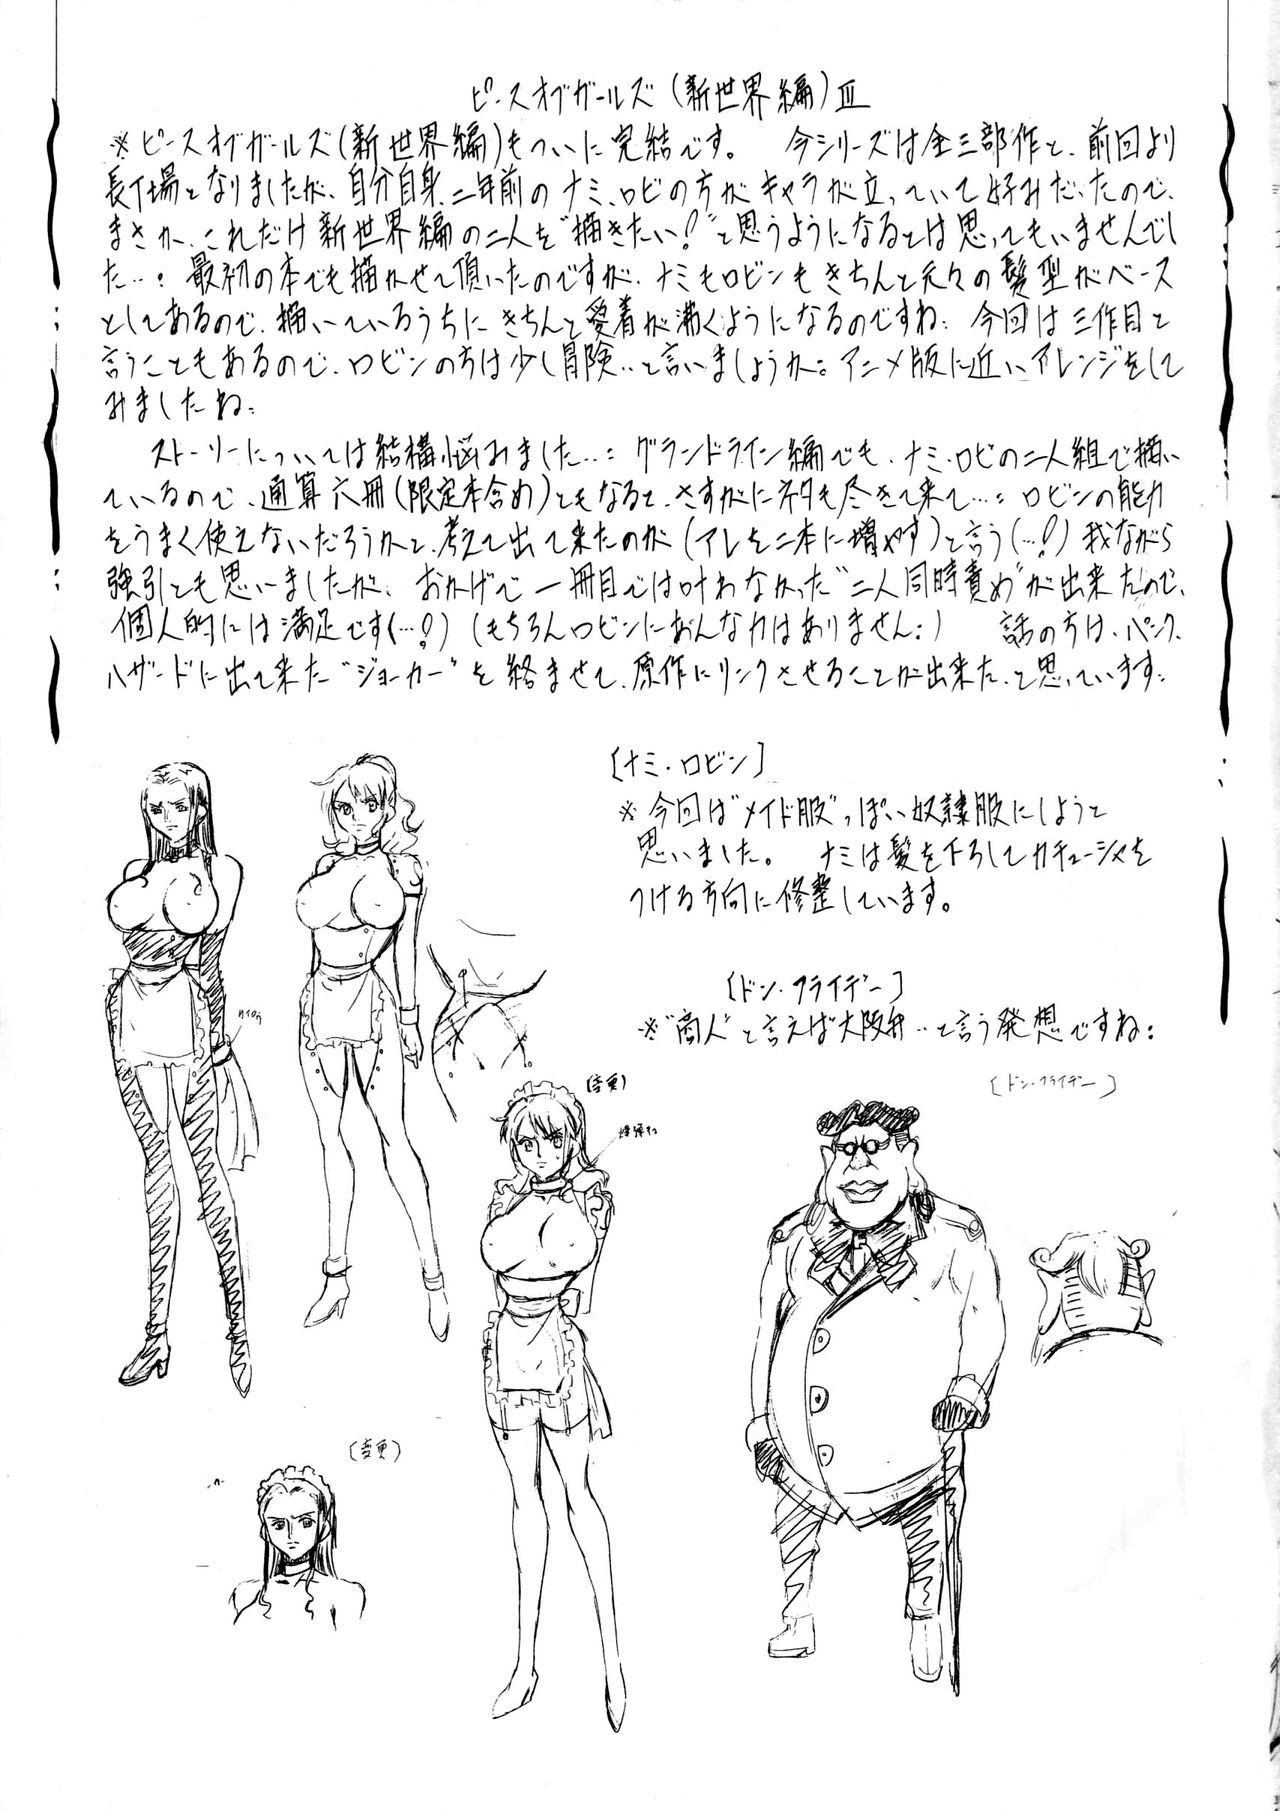 ピースオブガールズ(新世界編)III
※ピースオブガールズ(新世界編)もついに完結です。 今シリーズは全三部作と、前回より
長丁場となりましたが、自分自身、二年前のナミ、ロビの方がキャラが立っていて好みだったので、
まさか、これだけ新世界編の二人を“描きたい!”と思うようになるとは思ってもいませんでし
た…: 最初の本でも描かせて頂いたのですが、ナミもロビンもきちんと元々の髪型がベース
としてあるので、描いているうちにきちんと愛着が沸くようになるのですね: 今回は三作目と
言うこともあるので、ロビンの方は少し冒険‥と言いましょうか: アニメ版に近いアレンジをして
みましたね:
ストーリーについては結構悩みました…: グランドライン編でも、ナミ・ロビの二人組で描い
ているので、通算六冊(限定本含め)ともなると、さすがにネタも尽きて来て…: ロビンの能力
をうまく使えないだろうかと、考えて出て来たのが(アレを二本に増やす)と言う(…!?)我ながら
強引とも思いましたが、おかげで一冊目では叶わなかった“二人同時責め”が出来たので、
個人的には満足です(…!?)(もちろんロビンにあんな力はありません:) 話の方は、パンク
ハザードに出て来た“ジョーカー”を絡ませて、原作にリンクさせることが出来た、と思っています:
[ナミ・ロビン]
※今回は“メイド服”っぽい奴隷服にしようと
思いました。 ナミは髪を下ろしてカチューシャを
つける方向に修整しています。
[ドン・フライデー]
※“商人”と言えば大阪弁‥と言う発想ですね:
[ドン・フライデー]
(変更)
(変更)